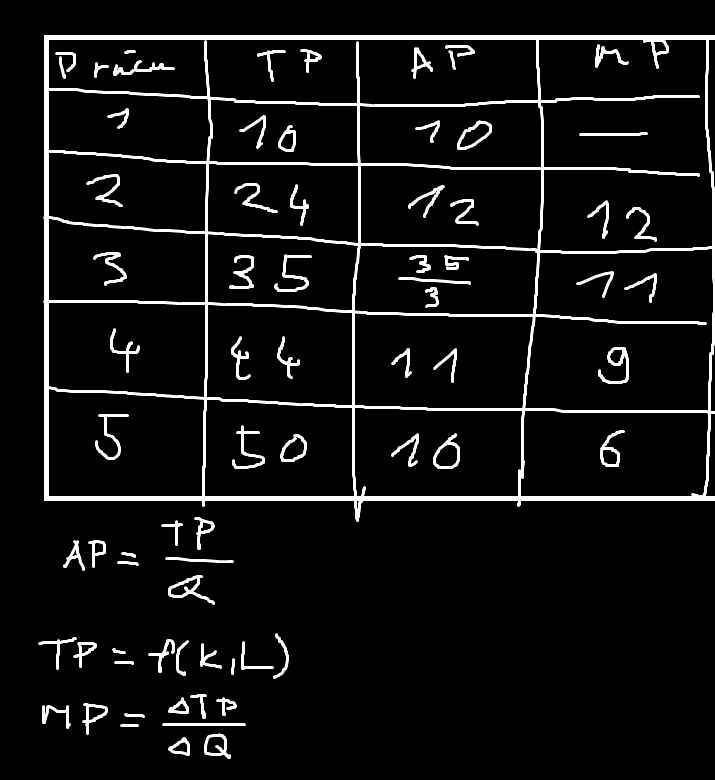 TP AP MP
1 10 10 —
2 24 12 12
3 35 35/3 11
4 44 11 9
5 50 10 6
AP = TP/Q
TP = f(K,L)
MP = ΔTP/ΔQ